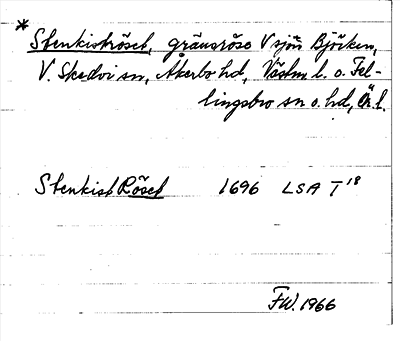 *
Stenkiströset, gränsröse V sjön Björken,
V. Skedvi sn, Åkerbo hd, Västm l. o. Fel-
lingsbro sn o. hd, Ör l.
Stenkist Röset 1696 LSA T 18
FW. 1966